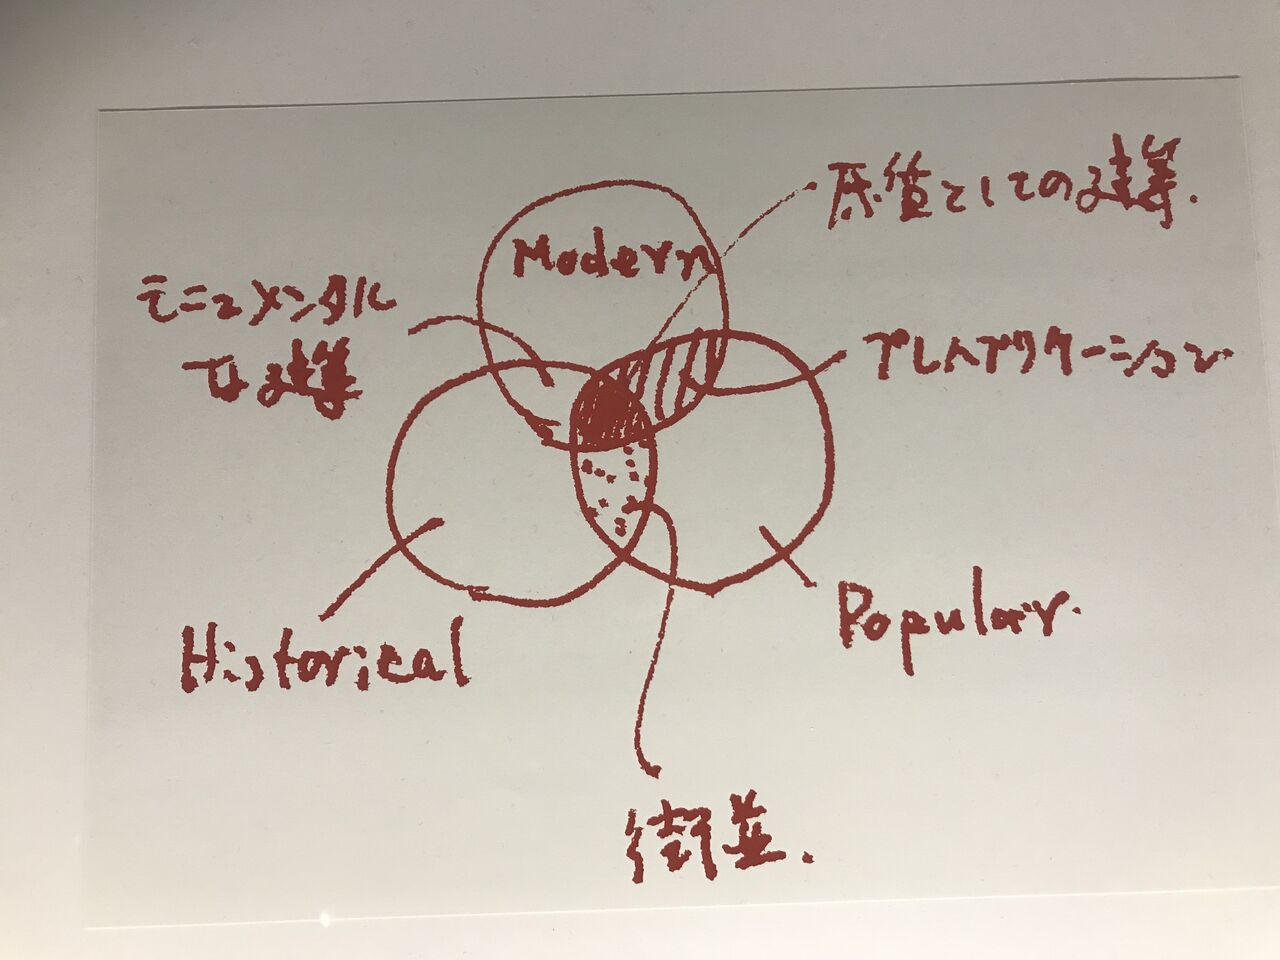 原質としての建築.
Modern
モニュメンタル
な建築
プレハブリケーション
Historical
Popular.
街並.